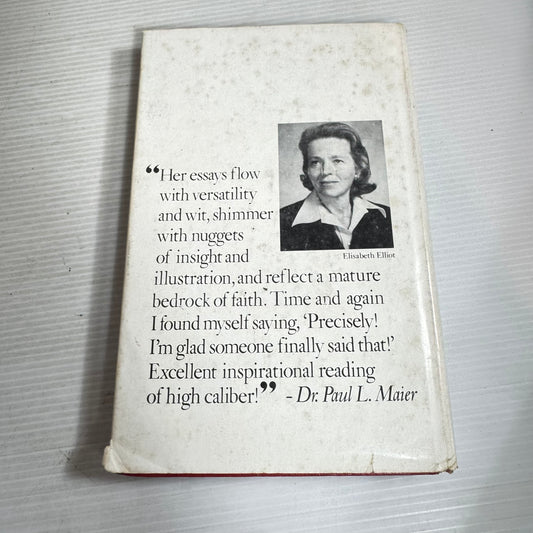 “Her essays flow
with versatility
and wit, shimmer
with nuggets
of insight and
Elisabeth Elliot
illustration, and reflect a mature
bedrock of faith. Time and again
I found myself saying, ‘Precisely!
I’m glad someone finally said that!’
Excellent inspirational reading
of high caliber!” - Dr. Paul L. Maier